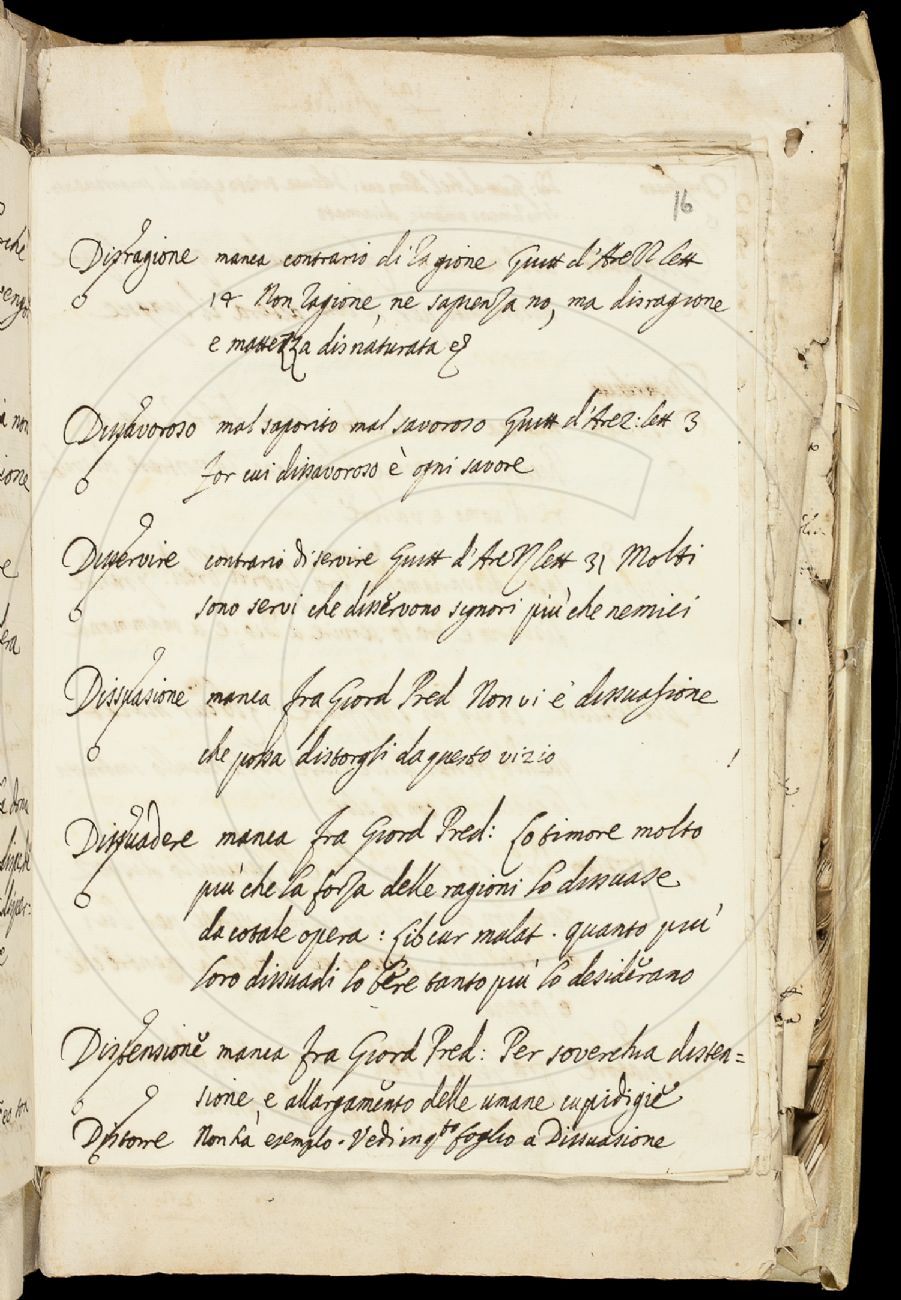 16
Disragione manca contrario di ragione Guitt d'Arezz lett
14 Non ragione, ne sapienza no, ma disragione
e mattezza disnaturata e
Dissavoroso mal saporito mal savoroso Guitt d'Arez: lett 3
for cui dissavoroso è ogni savore
Disservire contrario di servire Guitt d'Arezz lett 31 Molti
sono servi che disservono signori più che nemici
Dissuasione manca fra Giord Pred Non vi è dissuasione
che possa distorgli da questo vizio
Dissuadere manca fra Giord Pred: Lo timore molto
più che la forza delle ragioni lo dissuase
da cotale opera: Lib cur malat. quanto più
loro dissuadi lo bere tanto più lo desiderano
Distensione manca fra Giord Pred: Per soverchia disten=
sione, e allargamento delle umane cupidigie
Distorre Non ha esempio. Vedi in qto foglio a Dissuasione